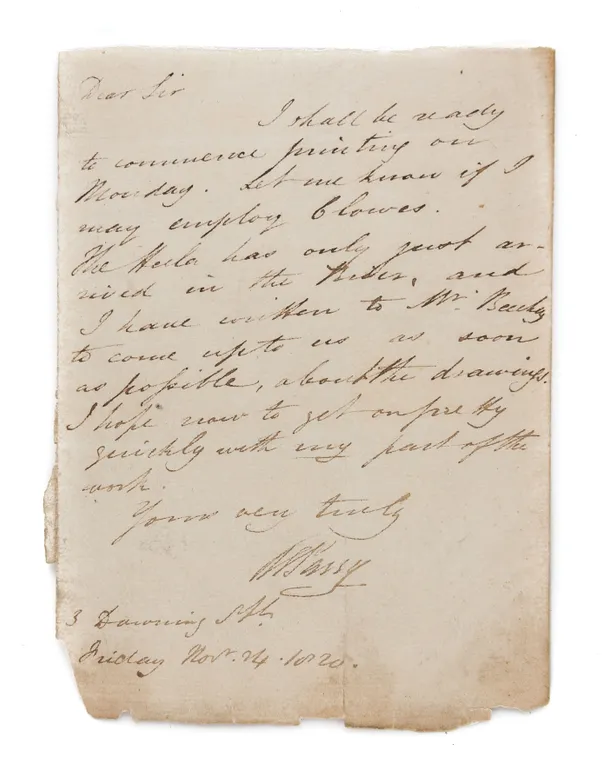 Dear Sir
I shall be ready
to commence printing on
Monday. Let me know if I
may employ Clowes.
The Hecla has only just ar-
rived in the River, and
I have written to Mr. Beechey
to come up to us as soon
as possible, about the drawings.
I hope now to get on pretty
quickly with my part of the
work.
Yours very truly
WEParry
3 Downing St.
Friday Novr. 24. 1820.